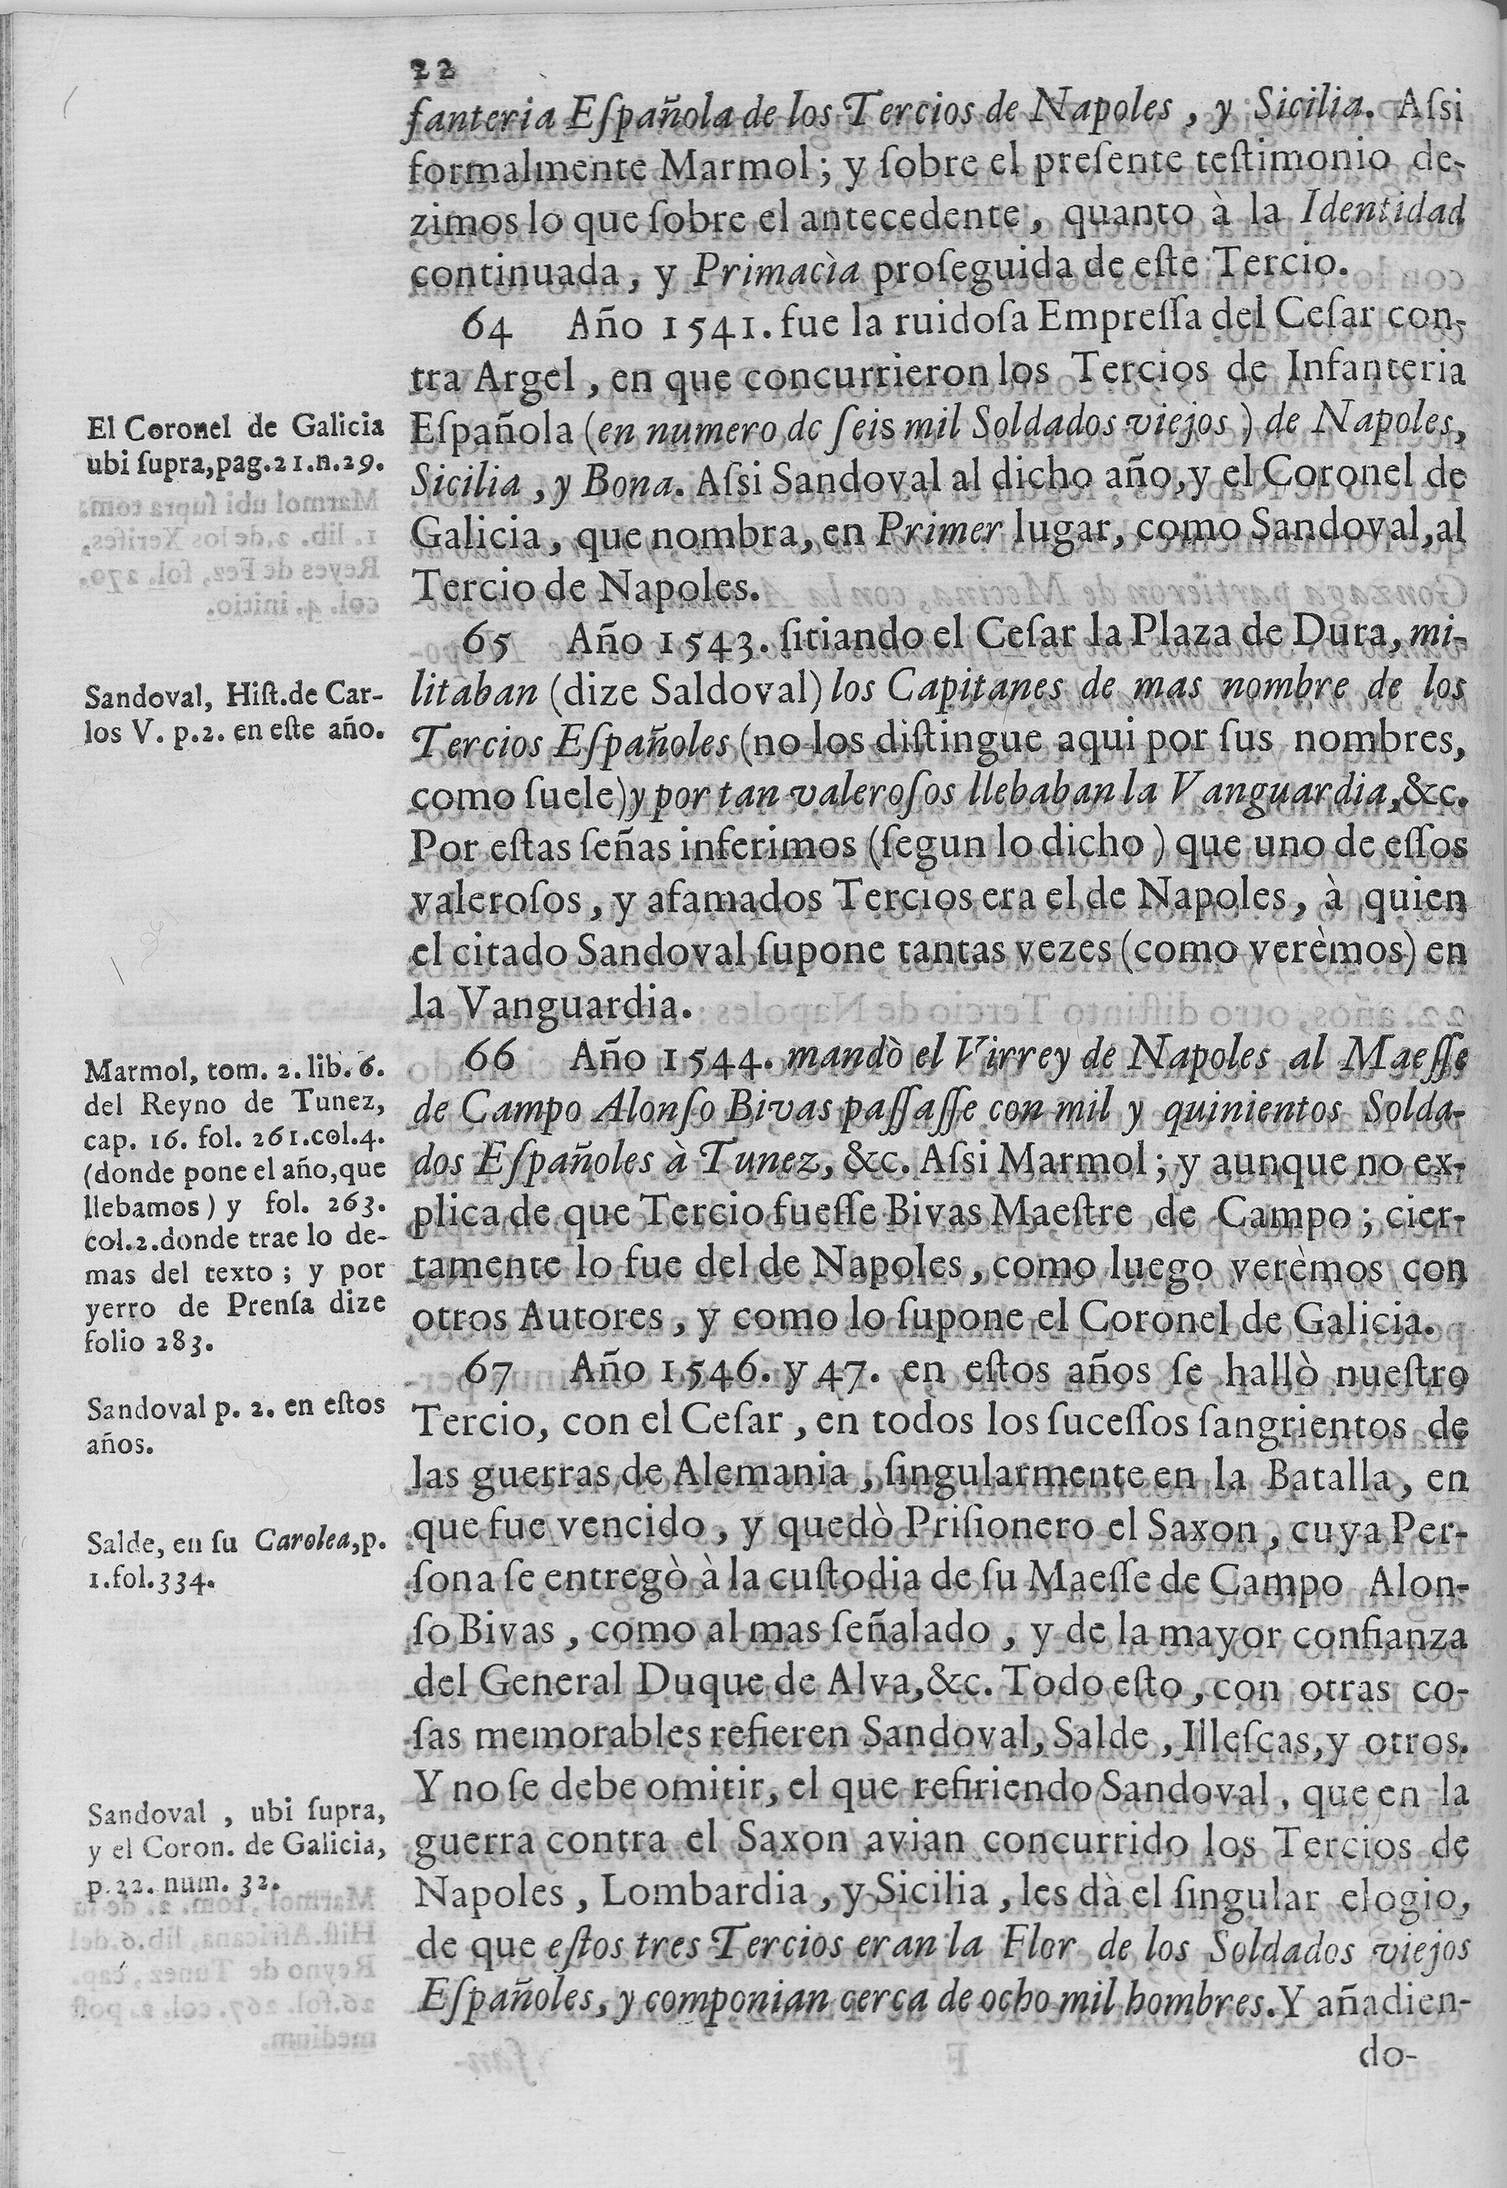 22
fanteria Eſpañola de los Tercios de Napoles, y Sicilia. Aſsi
formalmente Marmol; y ſobre el preſente teſtimonio de-
zimos lo que ſobre el antecedente, quanto à la Identidad
continuada, y Primacìa proſeguida de eſte Tercio.
64 Año 1541. fue la ruidoſa Empreſſa del Ceſar con-
tra Argel, en que concurrieron los Tercios de Infanteria
Eſpañola (en numero de ſeis mil Soldados viejos) de Napoles,
Sicilia, y Bona. Aſsi Sandoval al dicho año, y el Coronel de
Galicia, que nombra, en Primer lugar, como Sandoval, al
Tercio de Napoles.
65 Año 1543. ſitiando el Ceſar la Plaza de Dura, mi-
litaban (dize Saldoval) los Capitanes de mas nombre de los
Tercios Eſpañoles (no los diſtingue aqui por ſus nombres,
como ſuele) y por tan valeroſos llebaban la Vanguardia, &c.
Por eſtas ſeñas inferimos (ſegun lo dicho) que uno de eſſos
valeroſos, y afamados Tercios era el de Napoles, à quien
el citado Sandoval ſupone tantas vezes (como verèmos) en
la Vanguardia.
66 Año 1544. mandò el Virrey de Napoles al Maeſſe
de Campo Alonſo Bivas paſſaſſe con mil y quinientos Solda-
dos Eſpañoles à Tunez, &c. Aſsi Marmol; y aunque no ex-
plica de que Tercio fueſſe Bivas Maeſtre de Campo; cier-
tamente lo fue del de Napoles, como luego verèmos con
otros Autores, y como lo ſupone el Coronel de Galicia.
67 Año 1546. y 47. en eſtos años ſe hallò nueſtro
Tercio, con el Ceſar, en todos los ſuceſſos ſangrientos de
las guerras de Alemania, ſingularmente en la Batalla, en
que fue vencido, y quedò Priſionero el Saxon, cuya Per-
ſona ſe entregò à la cuſtodia de ſu Maeſſe de Campo Alon-
ſo Bivas, como al mas ſeñalado, y de la mayor confianza
del General Duque de Alva, &c. Todo eſto, con otras co-
ſas memorables refieren Sandoval, Salde, Illeſcas, y otros.
Y no ſe debe omitir, el que refiriendo Sandoval, que en la
guerra contra el Saxon avian concurrido los Tercios de
Napoles, Lombardia, y Sicilia, les dà el ſingular elogio,
de que eſtos tres Tercios eran la Flor de los Soldados viejos
Eſpañoles, y componian cerca de ocho mil hombres. Y añadien-
do-
El Coronel de Galicia
ubi ſupra, pag. 21. n. 29.
Sandoval, Hiſt. de Car-
los V. p. 2. en eſte año.
Marmol, tom. 2. lib. 6.
del Reyno de Tunez,
cap. 16. fol. 261. col. 4.
(donde pone el año, que
llebamos) y fol. 263.
col. 2. donde trae lo de-
mas del texto; y por
yerro de Prenſa dize
folio 283.
Sandoval p. 2. en eſtos
años.
Salde, en ſu Carolea, p.
1. fol. 334.
Sandoval, ubi ſupra,
y el Coron. de Galicia,
p. 22. num. 32.